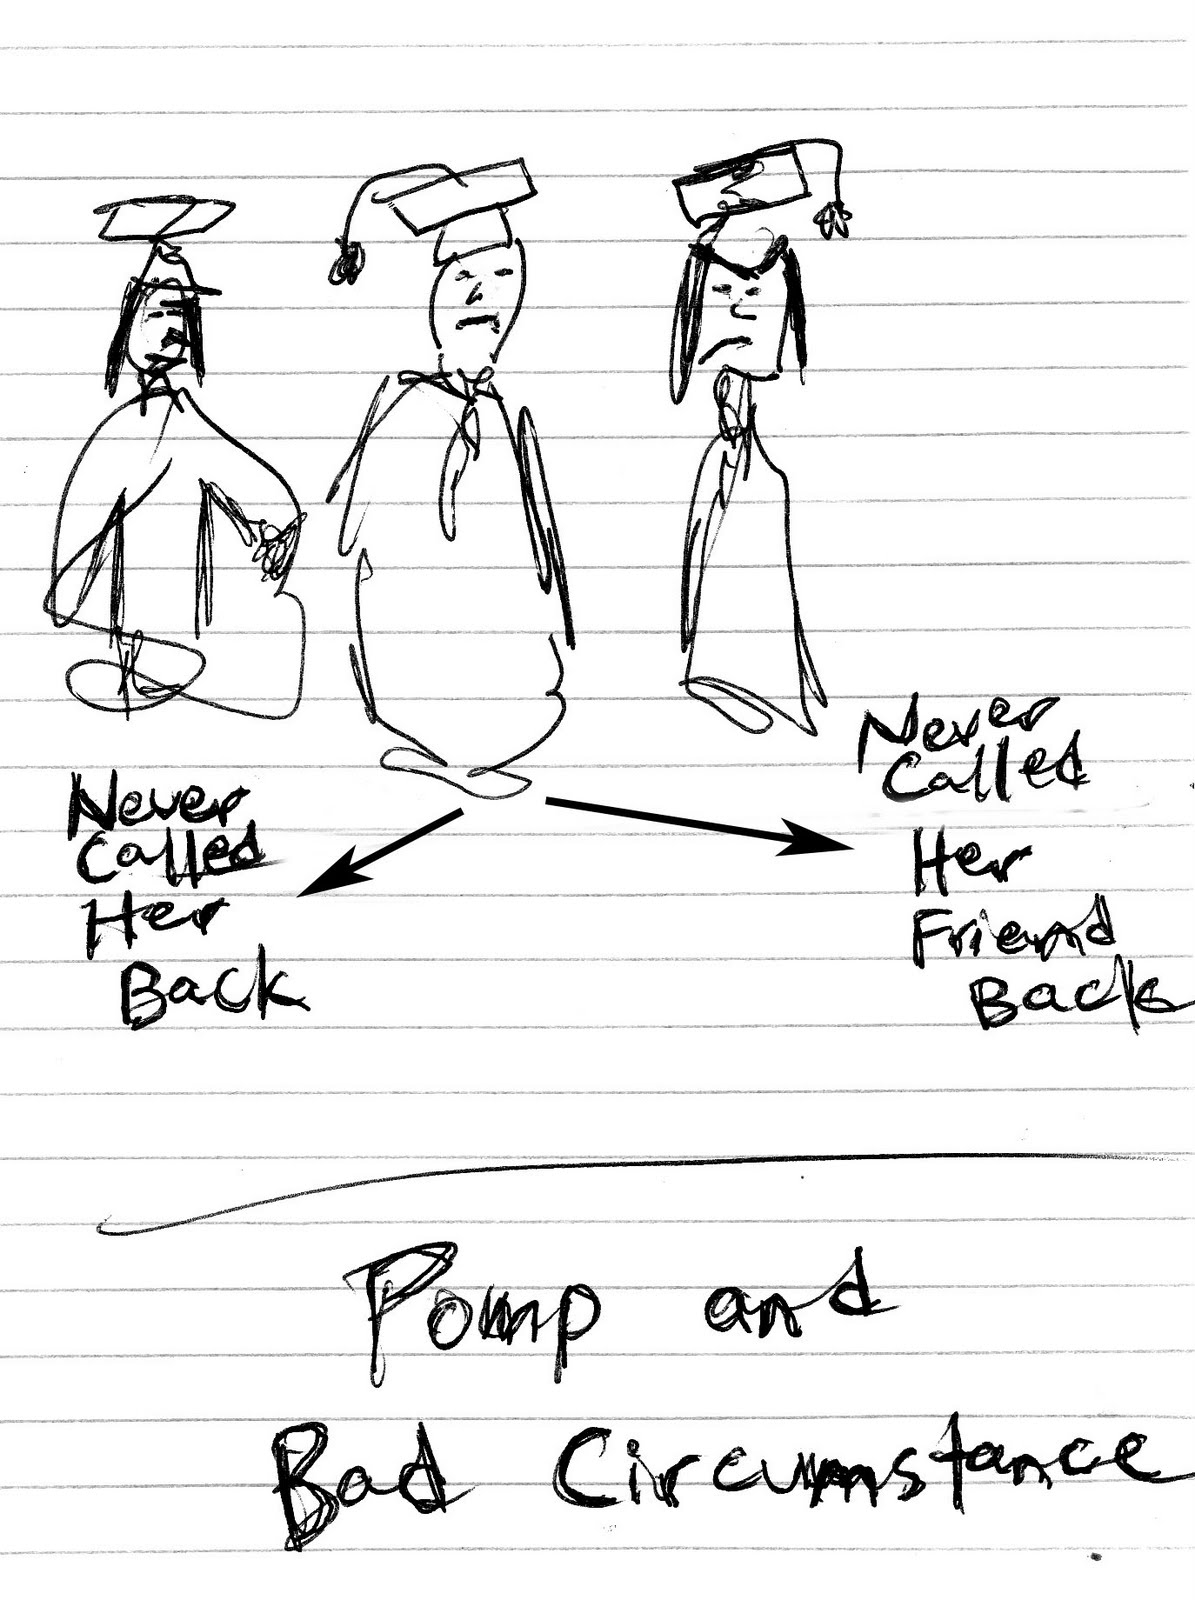 Never
Called
Her
Back
Never
Called
Her
Friend
Back
Pomp and
Bad Circumstance